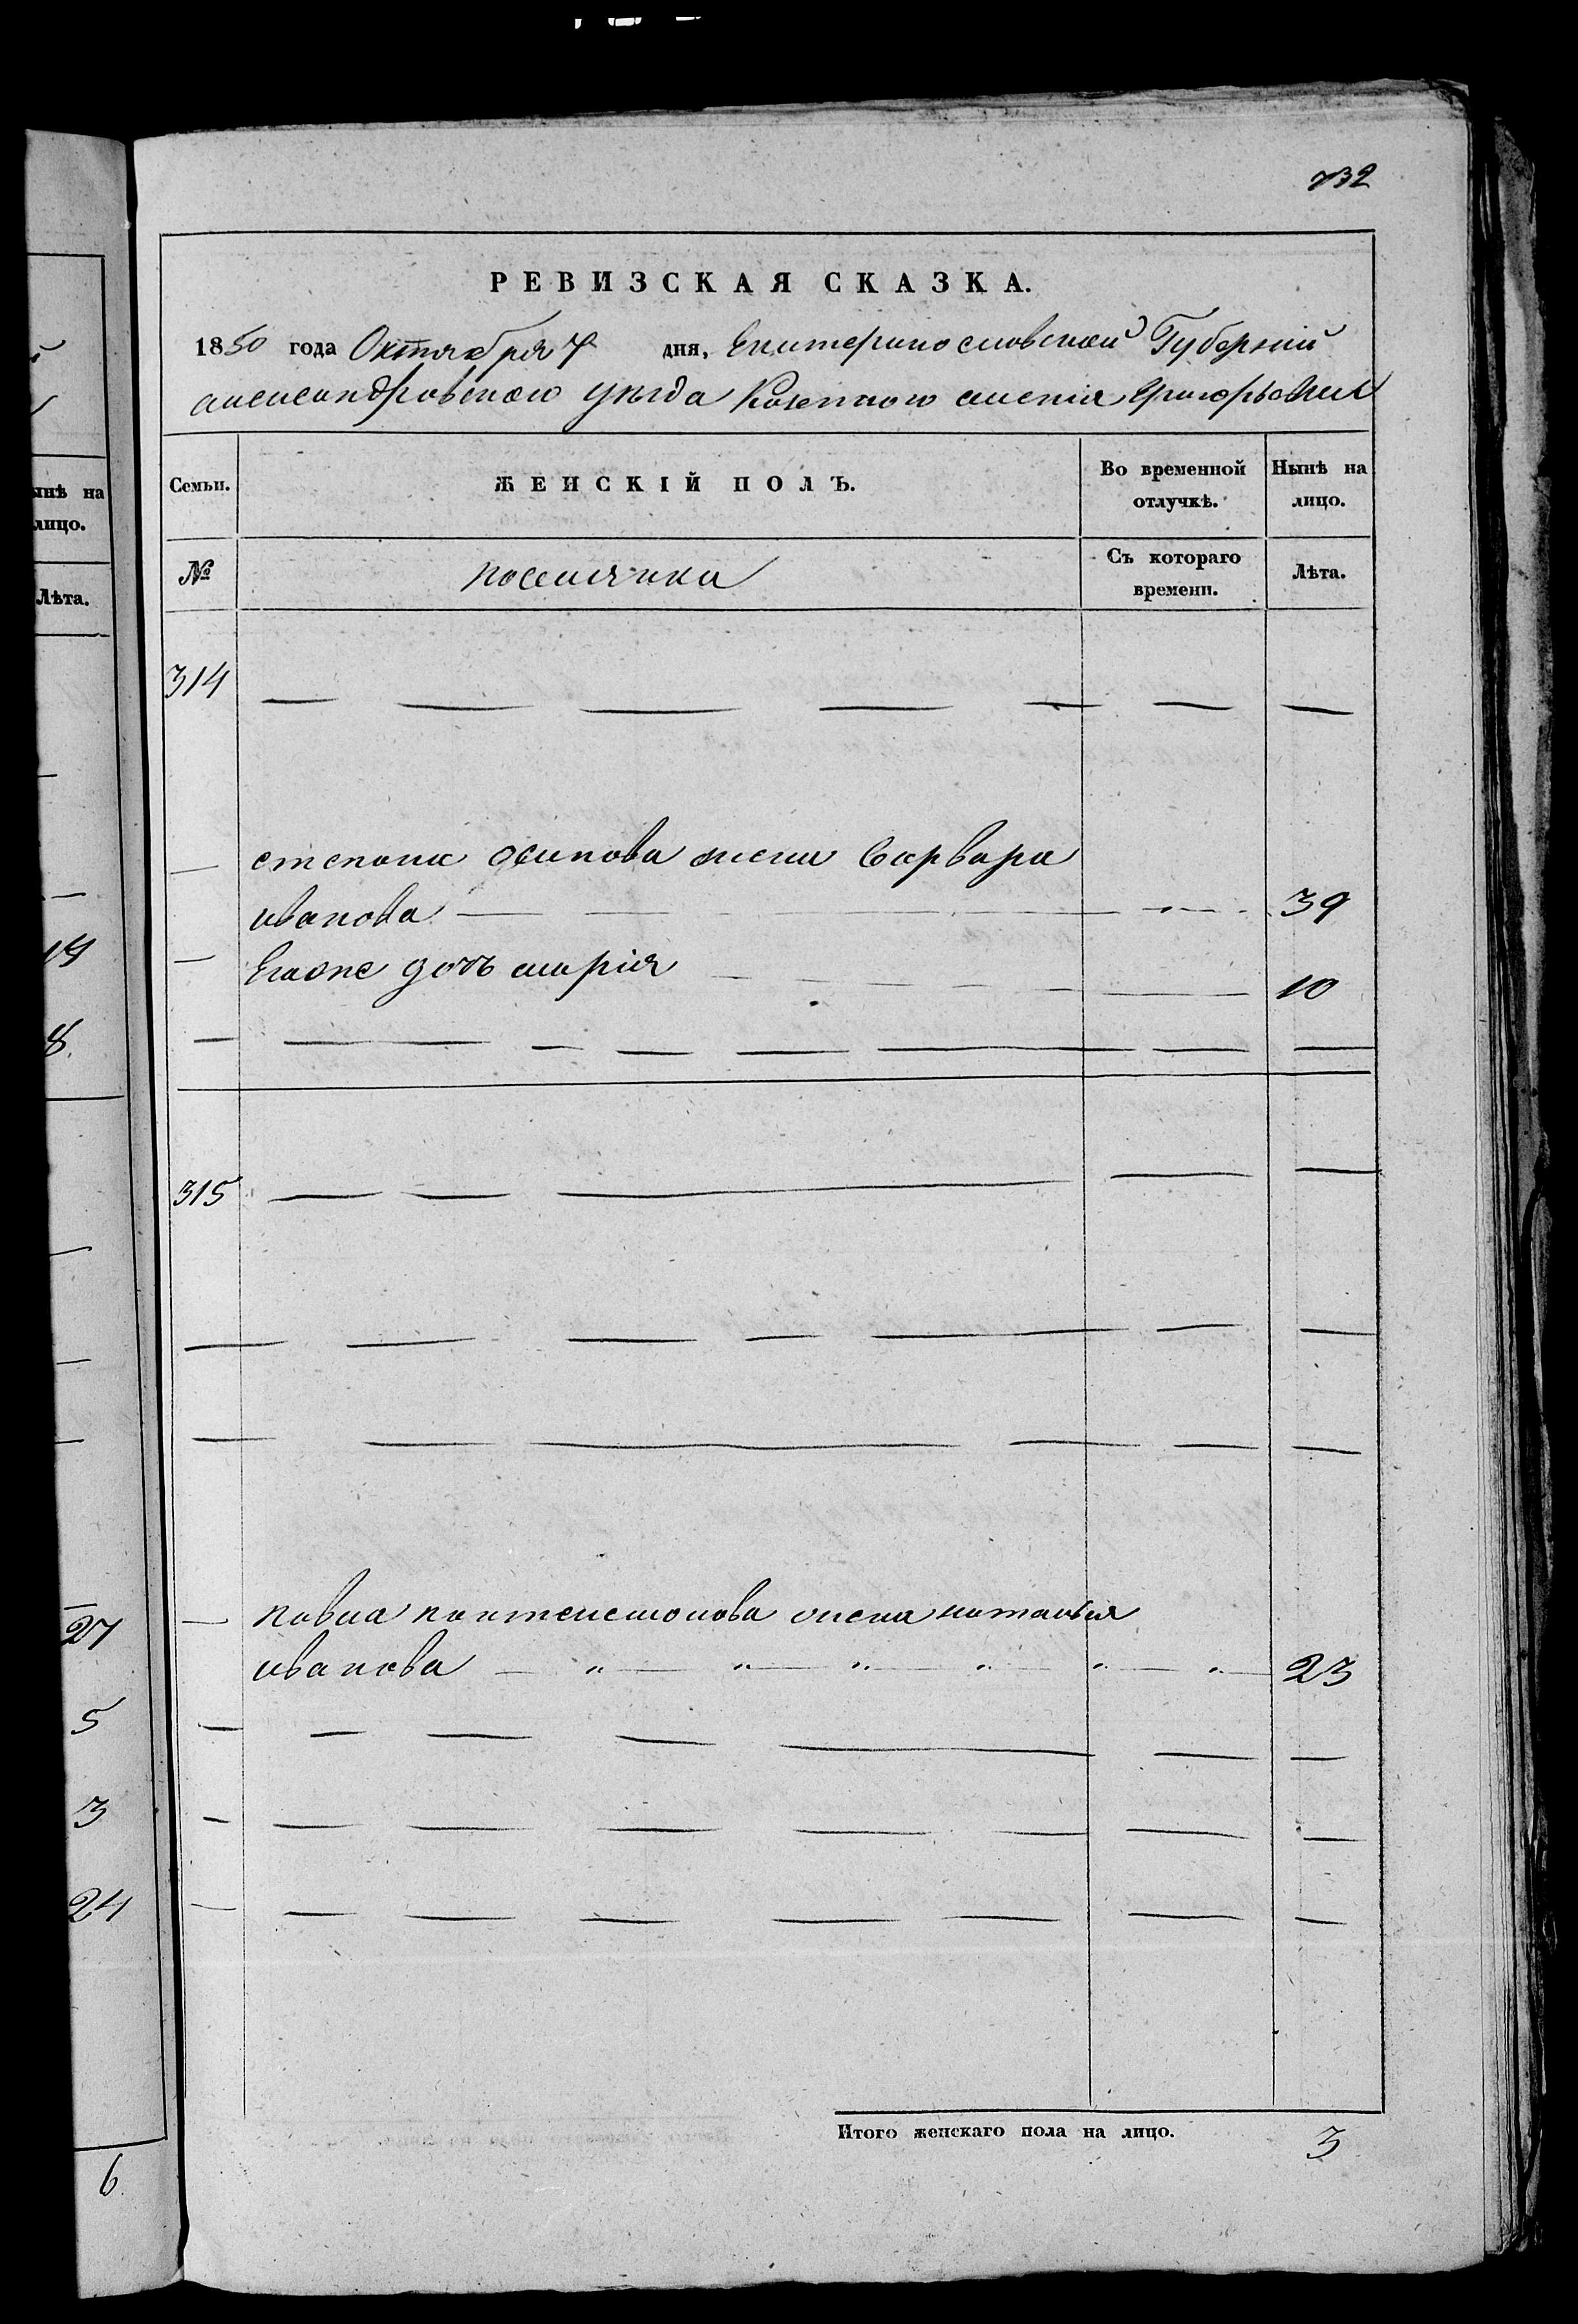 732
РЕВИЗСКАЯ СКАЗКА.
1850 года Октября 7 дня, Екатеринославской Губерніи
александровскаго уѣзда Казеннаго селенія Григорьевки
Семьи.
ЖЕНСКІЙ ПОЛЪ.
Во временной отлучкѣ.
Нынѣ на лицо.
№
поселянки
Съ котораго времени.
Лѣта.
314
степана осипова жена варвара
иванова 39
Егоже дочь марія 10
315
павла пантелемонова жена наталья
иванова 23
Итого женскаго пола на лицо. 3
ынѣ на
лицо.
Лѣта.
19
8.
27
5
3
24
6